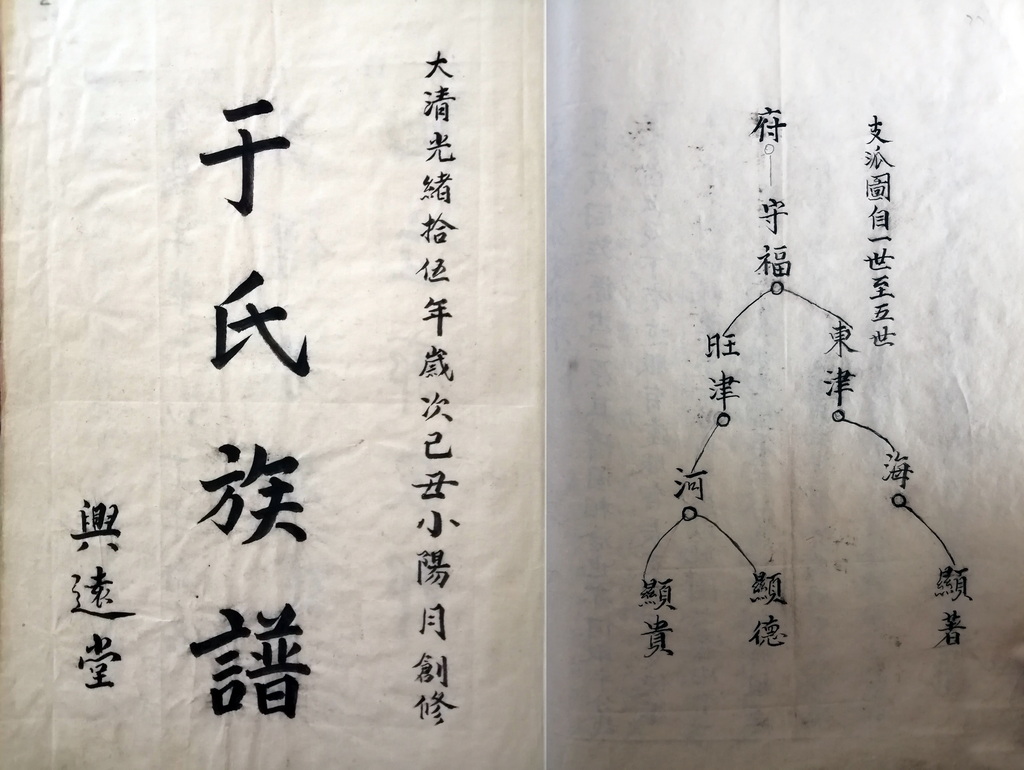 大清光緒拾伍年歲次已丑小陽月創修
于氏族譜
興遠堂
支派圖自一世至五世
府
守福
東津
旺津
海
河
顯著
顯德
顯貴